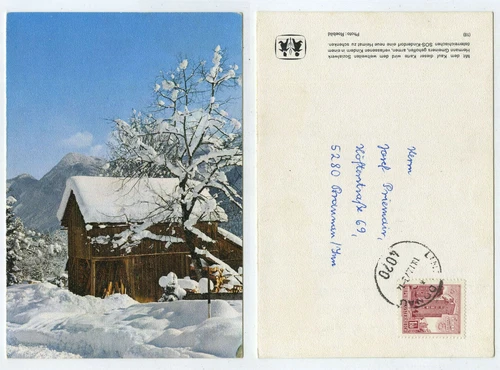 Mit dem Kauf dieser Karte wird dem weltweiten Sozialwerk
Hermann Gmeiners geholfen, armen, verlassenen Kindern im
österreichischen SOS-Kinderdorf eine neue Heimat zu schenken.
Photo: Rosbild
Herrn
Josef Priemair,
Höfterstraße 69,
5280 Braunau/Inn
4020
LINZ